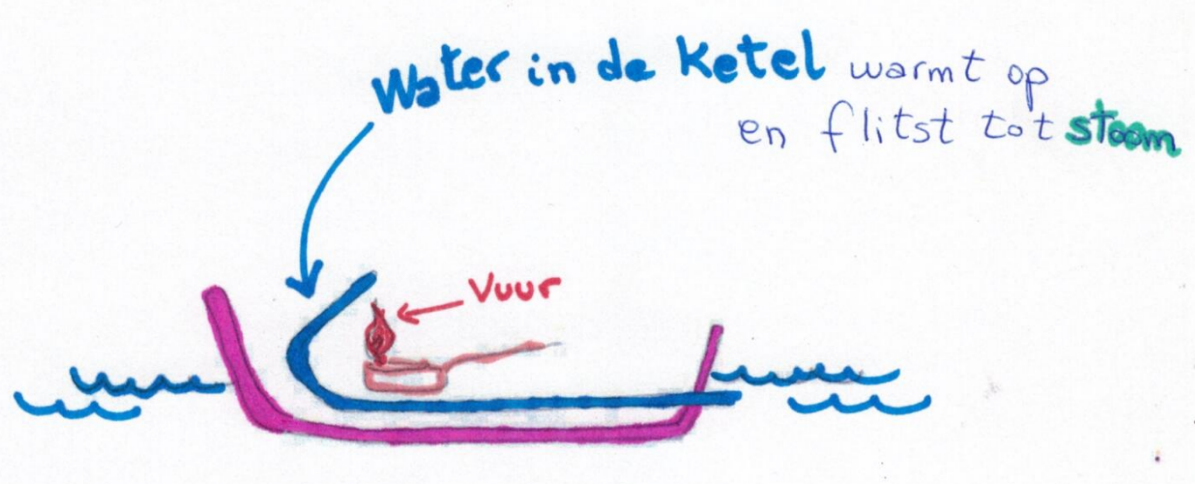 Water in de ketel warmt op
en flitst tot stoom
Vuur